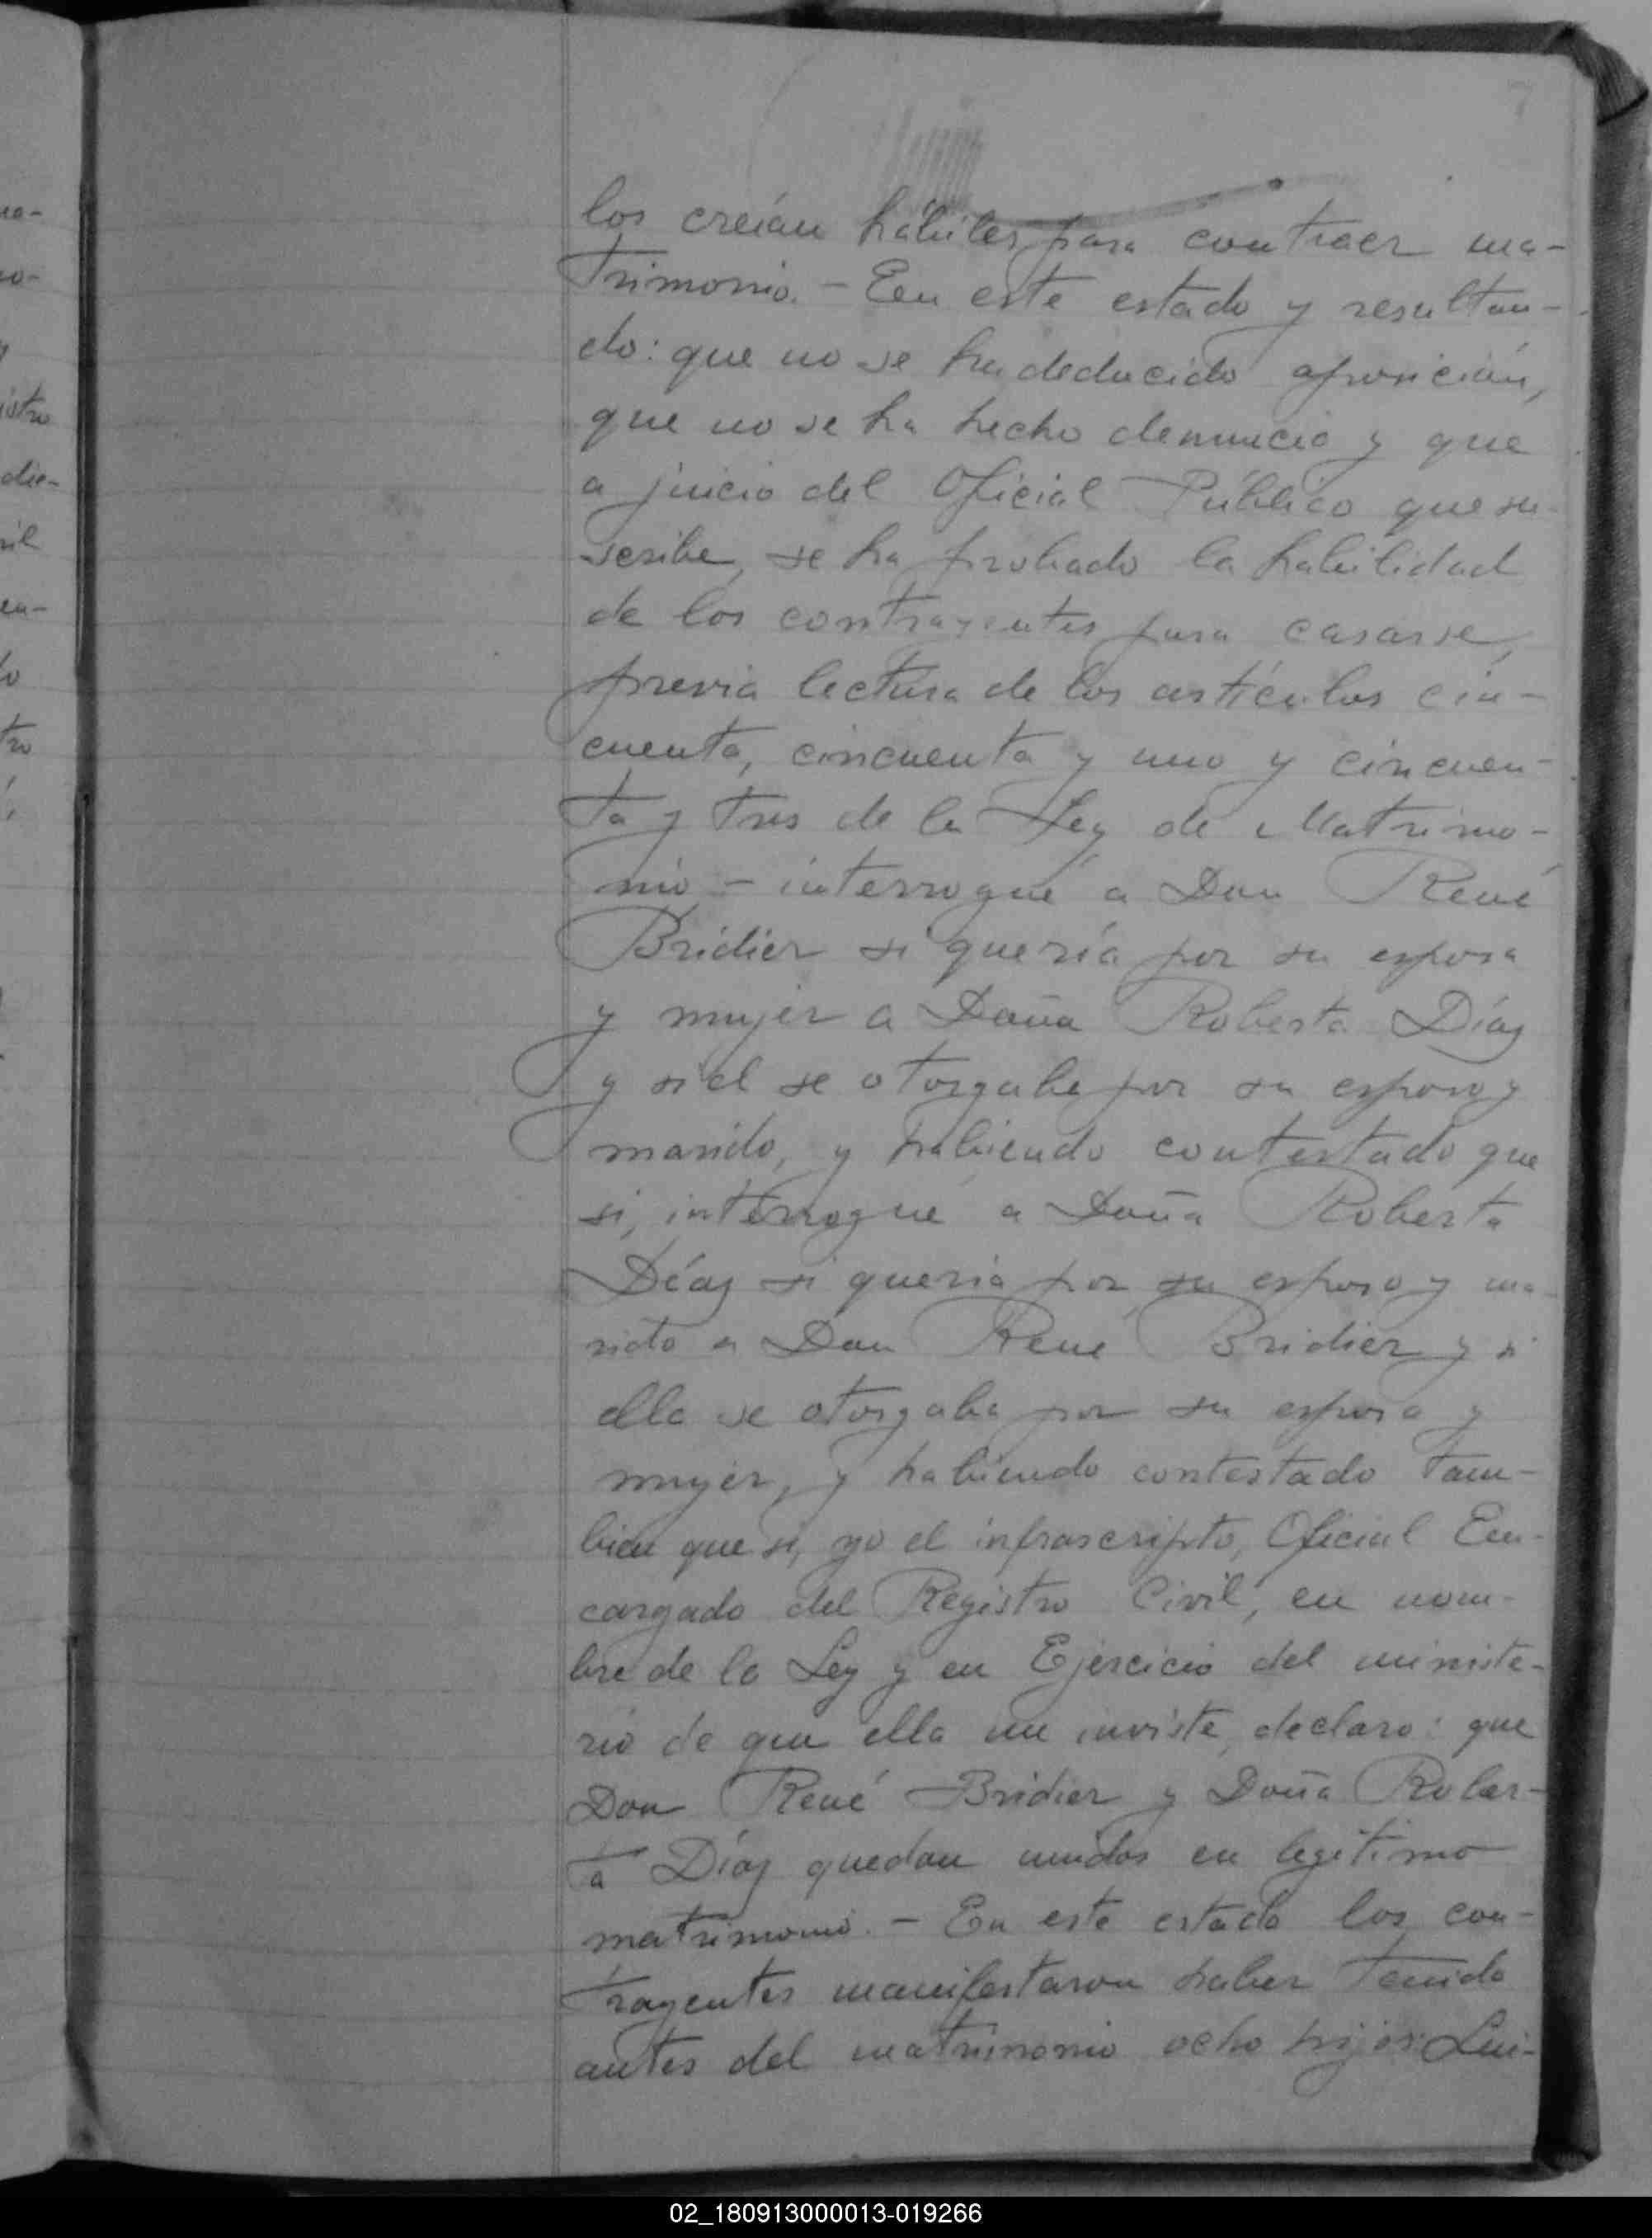 7
los creían hábiles para contraer ma-
trimonio. - En este estado y resultan-
do: que no se ha deducido oposición,
que no se ha hecho denuncia y que
a juicio del Oficial Público que su-
scribe, se ha probado la habilidad
de los contrayentes para casarse,
previa lectura de los artículos cin-
cuenta, cincuenta y uno y cincuen-
ta y tres de la Ley de Matrimo-
nio - interrogué a Don René
Bridier si quería por su esposa
y mujer a Doña Roberta Díaz
y si el se otorgaba por su esposo y
marido, y habiendo contestado que
si, interrogué a Doña Roberta
Díaz si quería por su esposo y ma-
rido a Don René Bridier y si
ella se otorgaba por su esposa y
mujer, y habiendo contestado tam-
bien que si, yo el infrascripto, Oficial En-
cargado del Registro Civil, en nom-
bre de la Ley y en Ejercicio del ministe-
rio de que ella me inviste, declaro: que
Don René Bridier y Doña Rober-
ta Díaz quedan unidos en legítimo
matrimonio. - En este estado los con-
trayentes manifestaron haber tenido
antes del matrimonio ocho hijos: Lui-
no-
istro
die-
vil
en-
tro
02_180913000013-019266